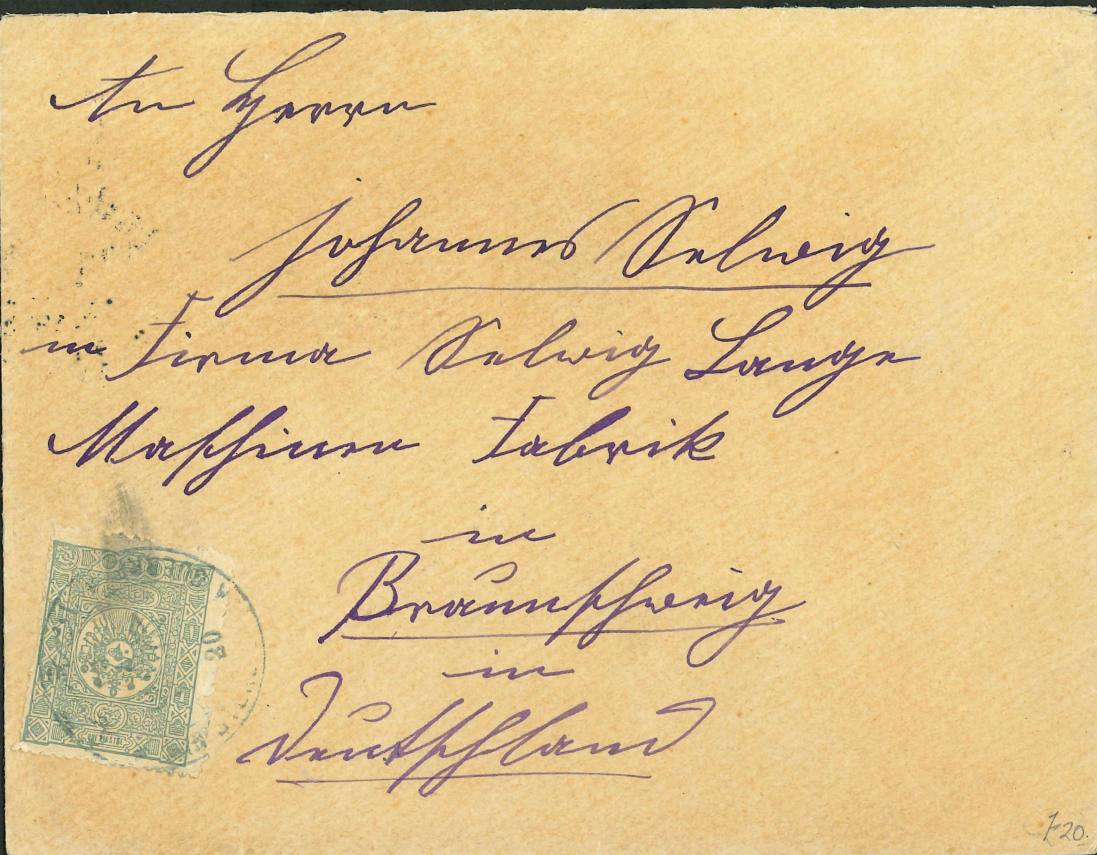 An Herrn
Johannes Selwig
in Firma Selwig Lange
Maschinen Fabrik
in
Braunschweig
in
Deutschland
20